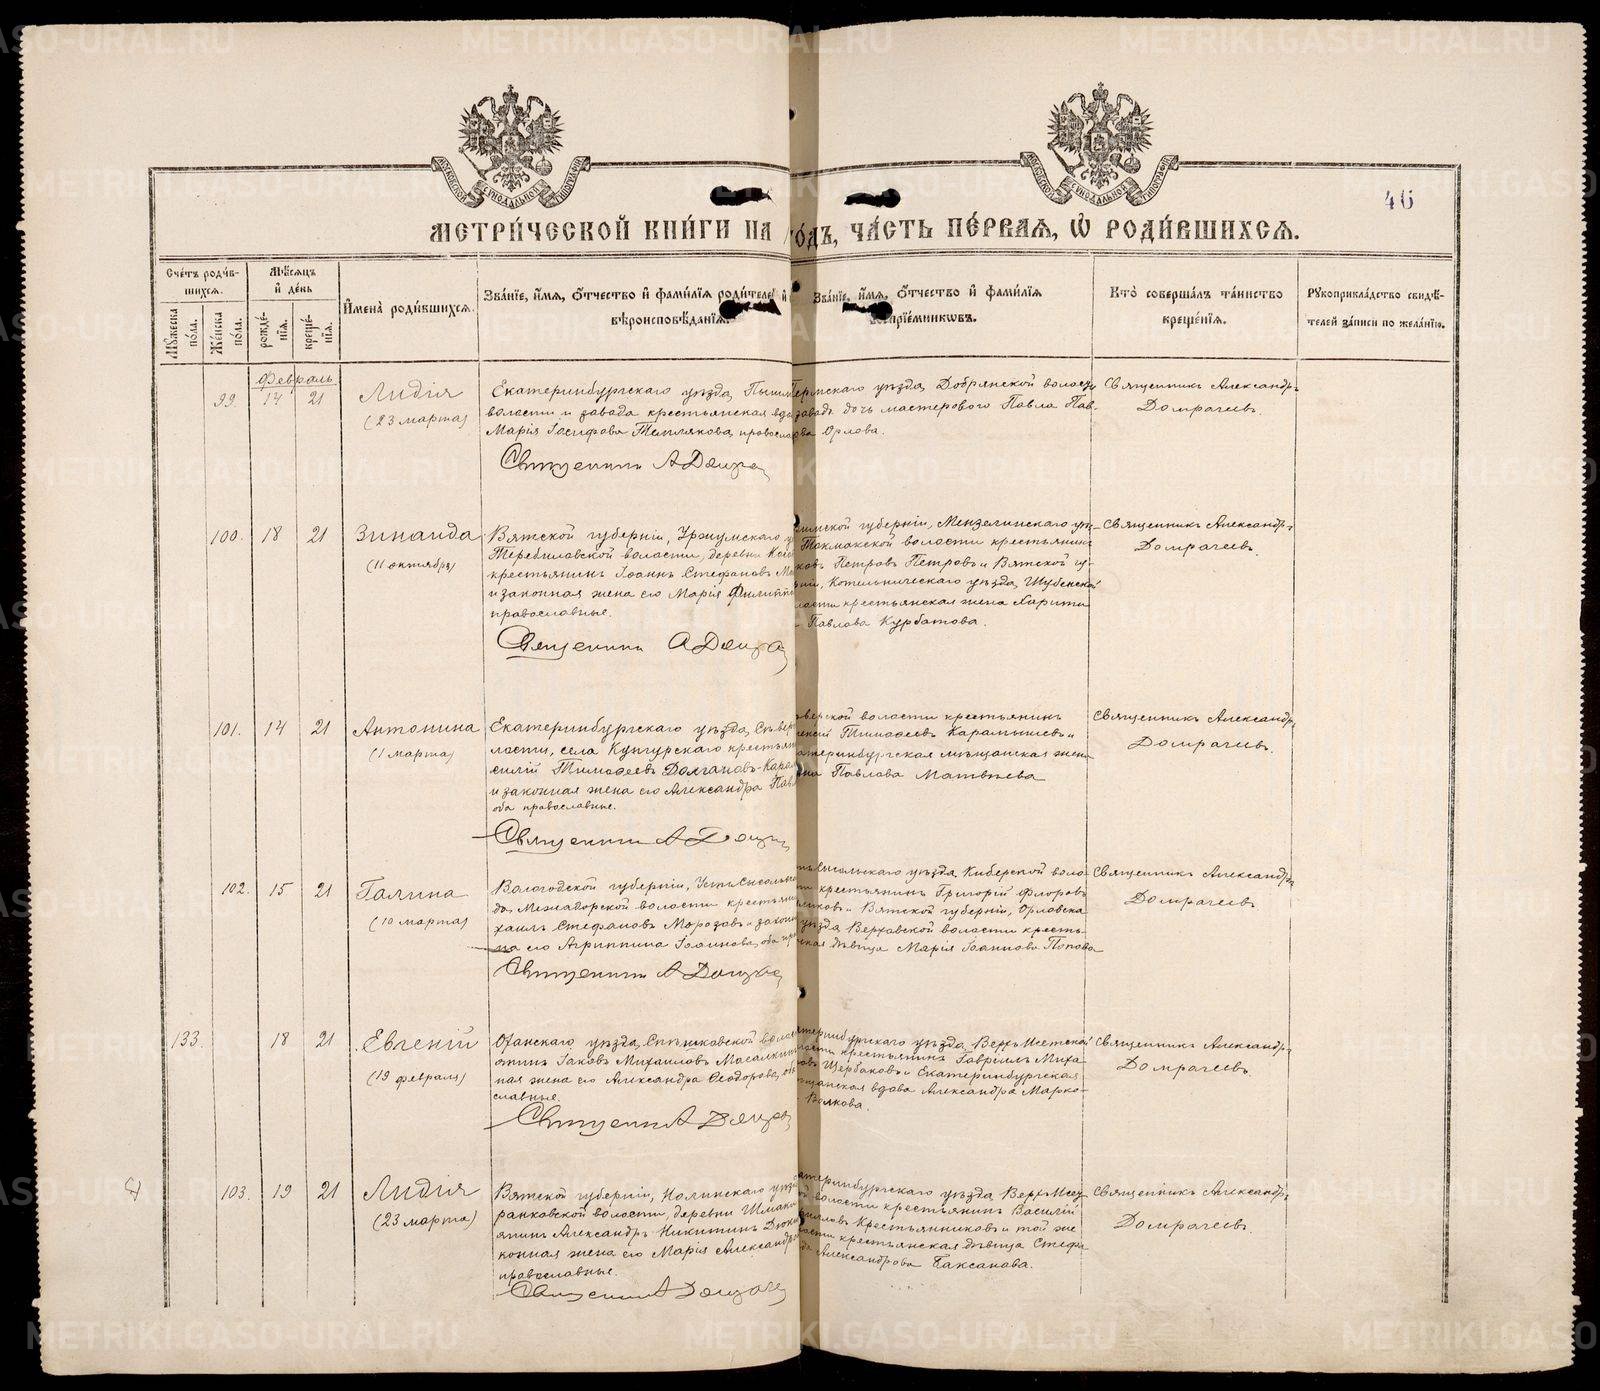 METRIKI.GASO-URAL.RU
МОСКОВСКОЙ СѴНОДАЛЬНОЙ ТИПОГРАФІИ
МОСКОВСКОЙ СѴНОДАЛЬНОЙ ТИПОГРАФІИ
46
МЕТРИ́ЧЕСКОЙ КНИ́ГИ НА ГО́ДЪ, ЧА́СТЬ ПЕ́РВАЯ, Ѡ РОДИ́ВШИХСЯ.
Сче́тъ роди́в-
шихся.
Му́жеска по́ла.
Же́нска по́ла.
Мѣ́сяцъ
и де́нь
рожде́-
нія.
креще́-
нія.
Имена̀ роди́вшихся.
Зва́ніе, и́мя, о́тчество и фами́лія роди́телей и
вѣроисповѣ́данія.
Зва́ніе, и́мя, о́тчество и фами́лія
воспріе́мниковъ.
Кто̀ соверша́лъ та́инство
креще́нія.
Рукоприкла́дство свидѣ́-
телей за́писи по жела́нію.
Февраль
99. 14 21 Лидія
(23 марта)
Екатеринбургскаго уѣзда, Пышм
волости и завода крестьянская вдо
Марія Іосифова Теплякова, правосла
Священникъ А Дом
Пермскаго уѣзда Добрянской волости
заводъ дочь мастерового Павла Пав-
ва Орлова.
Священникъ Александръ
Домрачевъ.
100. 18 21 Зинаида
(11 октября)
Вятской губерніи, Уржумскаго у
Теребиловской волости, деревни
крестьянинъ Іоаннъ Стефановъ
и законная жена его Марія Филиппо
православные.
Священникъ А Дом
губерніи, Мензелинскаго уѣ-
Токмакской волости крестьянинъ
Петровъ Петровъ и Вятской гу-
ніи, Котельническаго уѣзда, Шубенской
лости крестьянская жена Харити
Павлова Курбатова.
Священникъ Александръ
Домрачевъ.
101. 14 21 Антонина
(1 марта)
Екатеринбургскаго уѣзда, Сѣвер
лости, села Кунгурскаго крестьян
силій Тимофеевъ Долгановъ-Кара
и законная жена его Александра Пав
оба православные.
Священникъ А Дом
верской волости крестьянинъ
Тимофеевъ Карамышевъ и
катеринбургская мѣщанская жена
Павлова Матвѣева
Священникъ Александръ
Домрачевъ.
102. 15 21 Галина
(10 марта)
Вологодской губерніи, Устьсысольска
да, Межадорской волости крестьяни
хаилъ Стефановъ Морозовъ и закон
на его Агриппина Іоаннова, оба пра
Священникъ А Дом
тьсысольскаго уѣзда Киберской воло-
ти крестьянинъ Григорій Флоровъ
и Вятской губерніи, Орловска
уѣзда Верховской волости кресть-
нская дѣвица Марія Іоаннова Попова
Священникъ Александръ
Домрачевъ.
133. 18 21 Евгеній
(19 февраля)
Оханскаго уѣзда, волос
янинъ Іаковъ Михаиловъ
ная жена его Александра Ѳеодорова, об
славные.
Священникъ А Дом
катеринбургскаго уѣзда, Верхъ-Исетской
лости крестьянинъ Гавріилъ Миха
овъ Щербаковъ и Екатеринбургская
щанская вдова Александра Марко-
Волкова.
Священникъ Александръ
Домрачевъ.
103. 19 21 Лидія
(23 марта)
Вятской губерніи, Нолинскаго уѣзда
волости, деревни
янинъ Александръ Никитинъ
конная жена его Марія Александро
православные.
Священникъ А Дом
катеринбургскаго уѣзда Верхъ-Исет-
ой волости крестьянинъ Василій
Крестьянниковъ и той же
лости крестьянская дѣвица Стефа-
да Александрова Баксанова.
Священникъ Александръ
Домрачевъ.